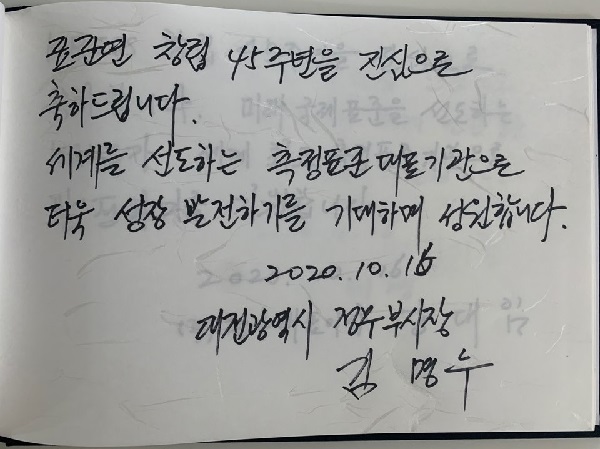 표준연 창립 45주년을 진심으로
축하드립니다.
세계를 선도하는 측정표준 대표기관으로
더욱 성장 발전하기를 기대하며 상원합니다.
2020.10.16
대전광역시 정무부시장
김명수